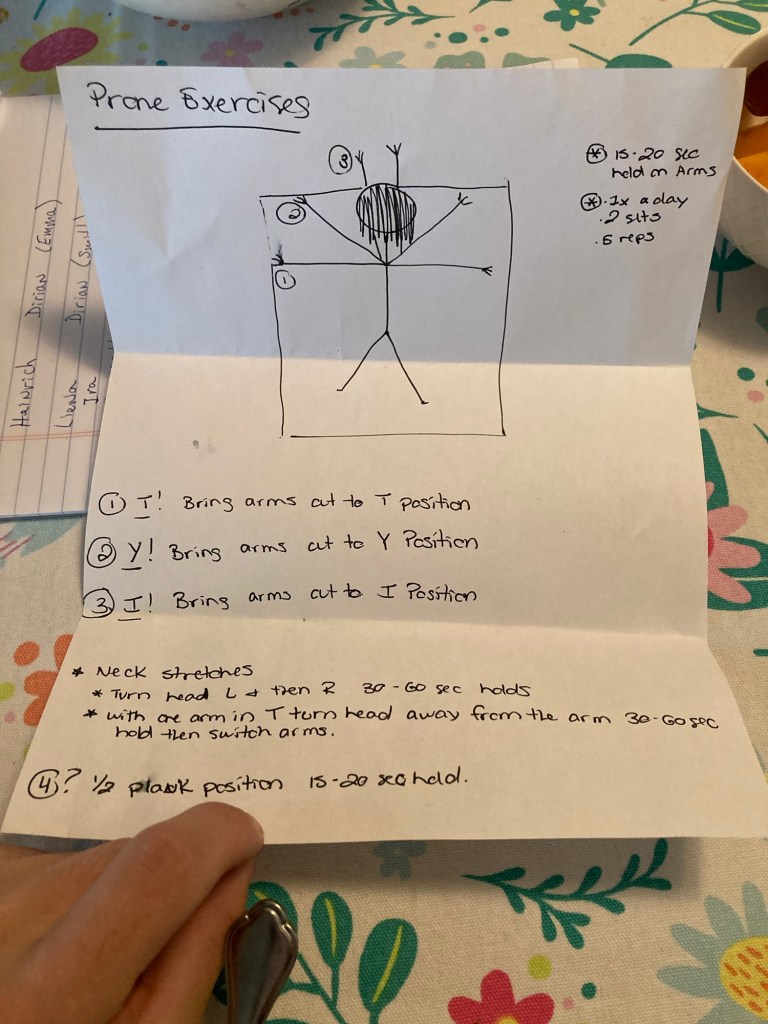 Prone Exercises
③
* 15-20 sec
held on Arms
* · 1x a day
· 2 sets
· 5 reps
②
①
① T! Bring arms out to T position
② Y! Bring arms out to Y Position
③ I! Bring arms out to I Position
* Neck stretches
* Turn head L & then R 30-60 sec holds
* with one arm in T turn head away from the arm 30-60 sec
hold then switch arms.
④? 1/2 plank position 15-20 sec held.
Heinrich Dirian (Emma)
Dirian
Ira